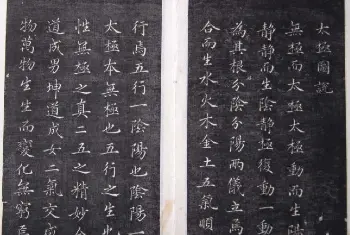 太極圖說
無極而太極太極動而生陽
靜靜而生陰靜極復動一動
為其根分陰分陽兩儀立焉
合而生水火木金土五氣順
行焉五行一陰陽也陰陽一
太極本無極也五行之生也
性無極之真二五之精妙合
道成男坤道成女二氣交感
物萬物生生而變化無窮焉